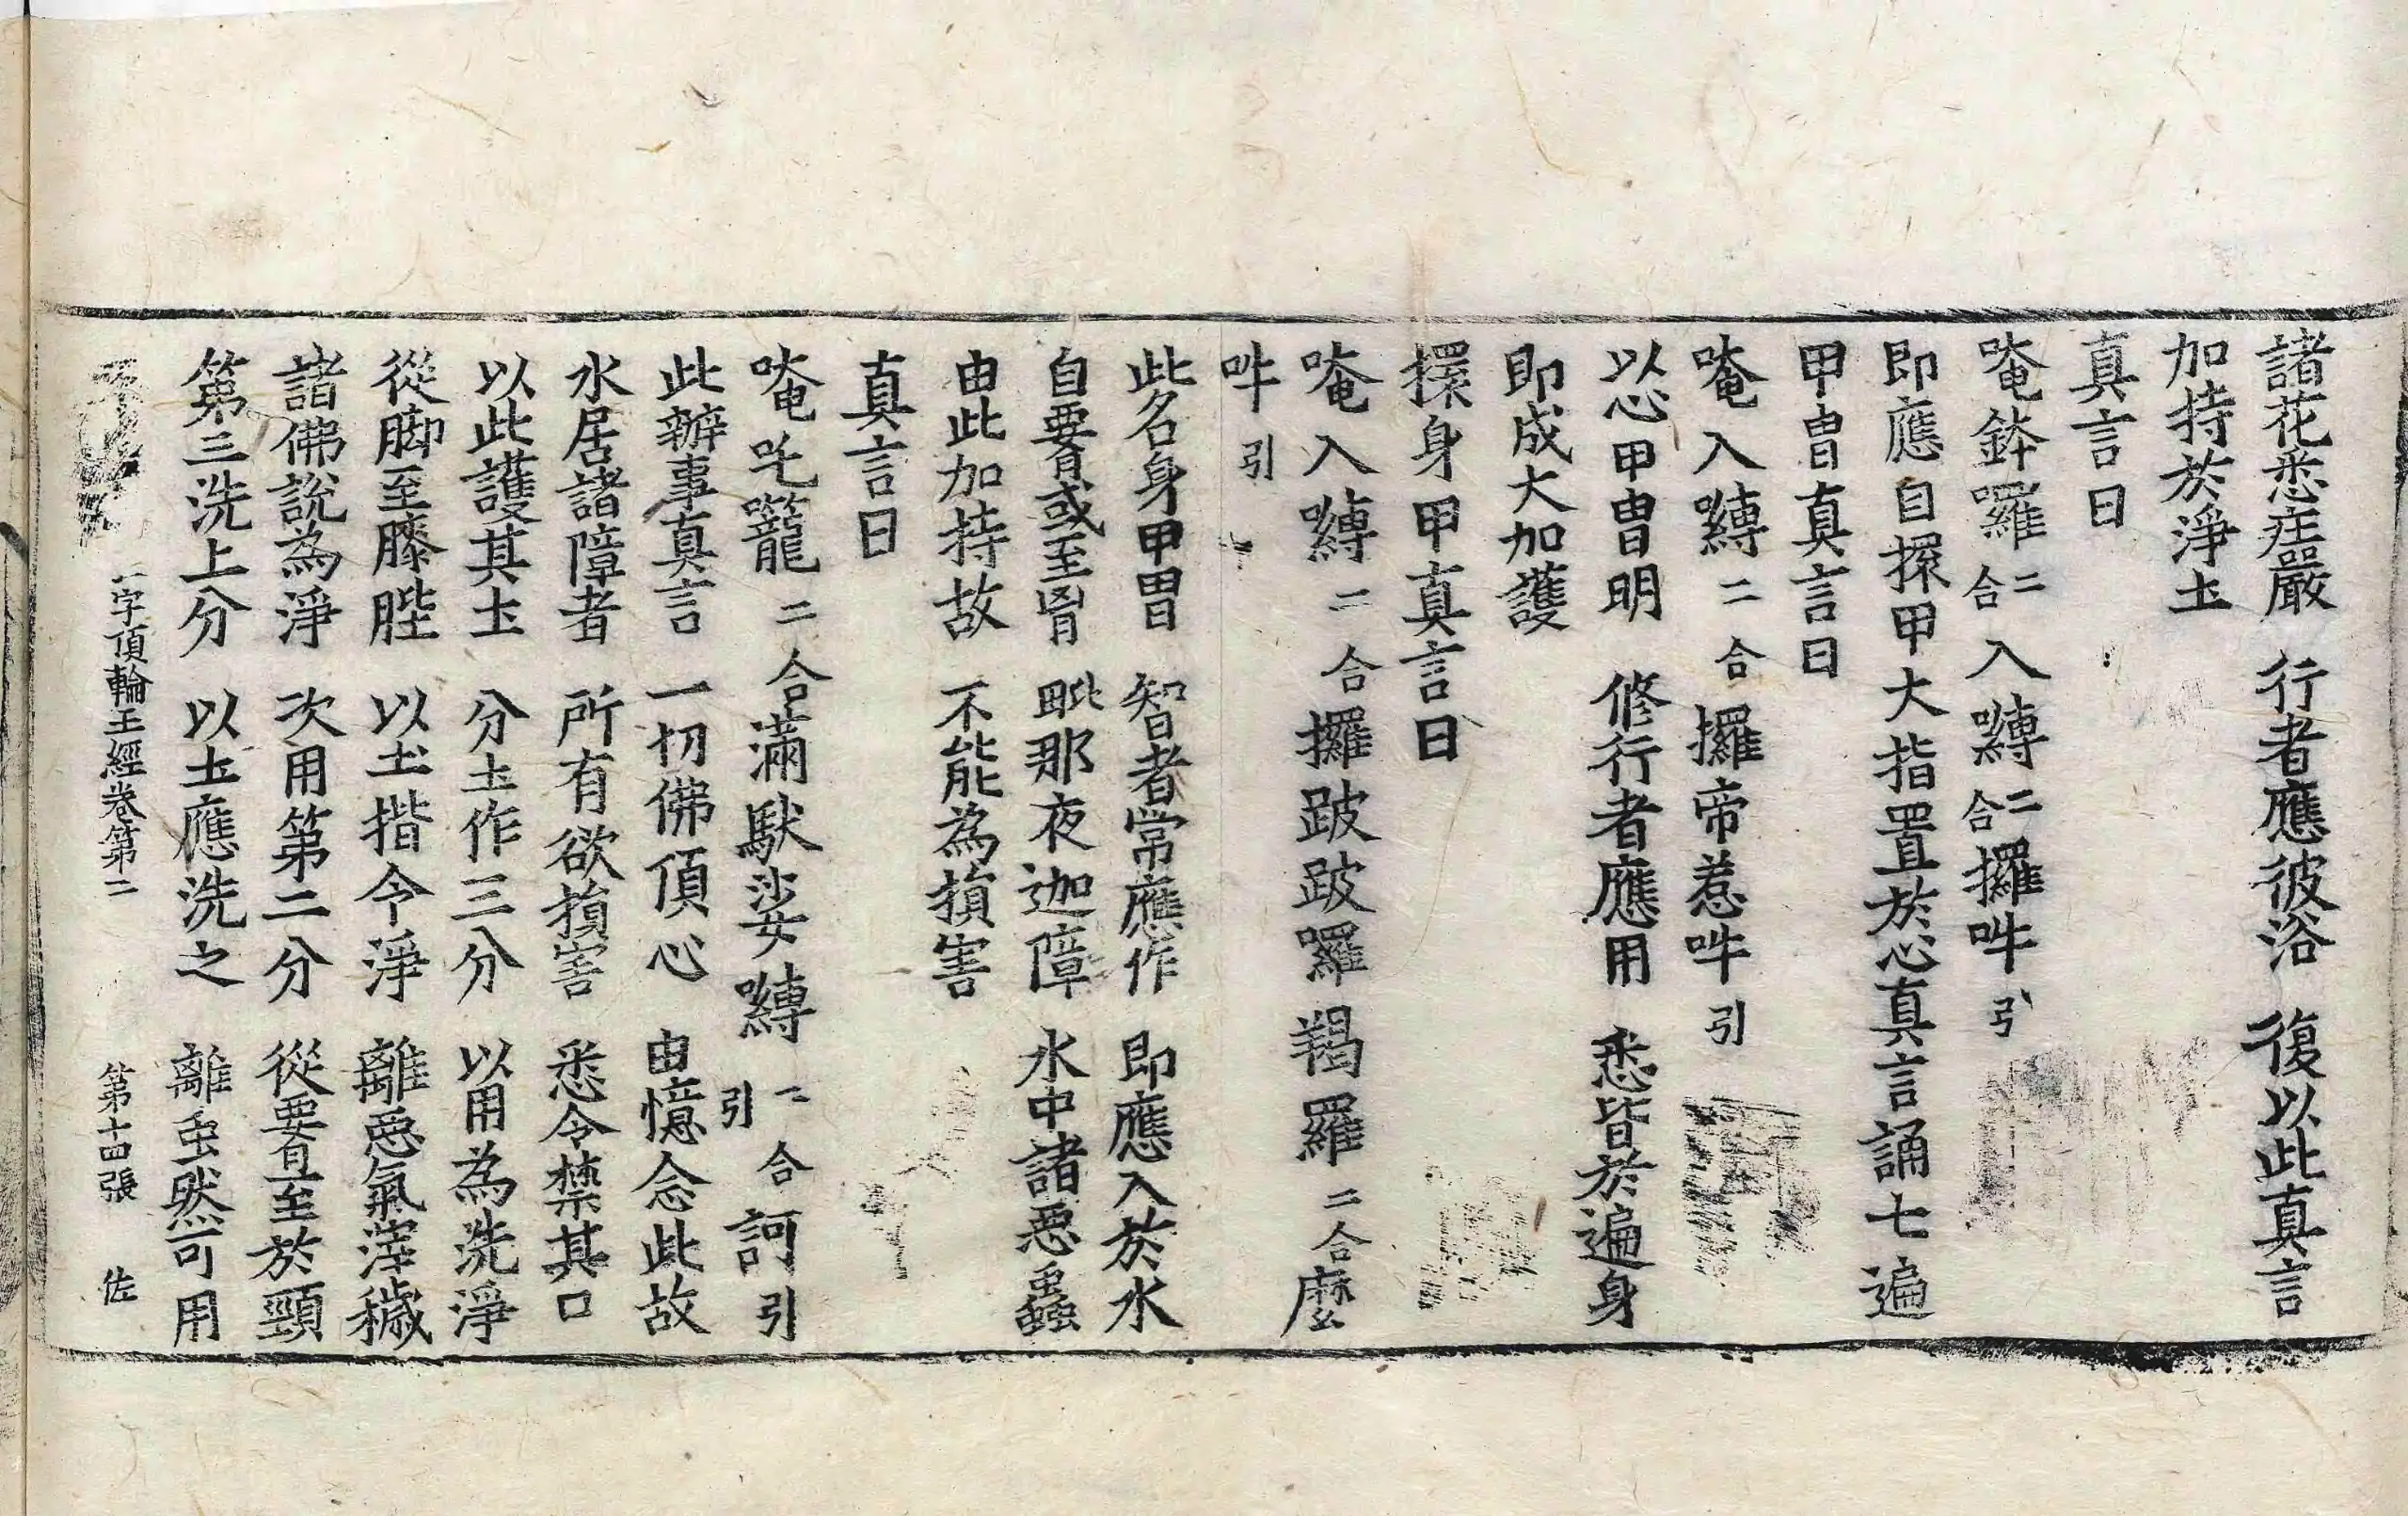 諸花悉庄嚴　行者應彼浴　復以此真言
加持於淨土
真言曰
唵鉢囉二合入嚩二合攞吽引
即應自擐甲大指置於心真言誦七遍
甲冑真言曰
唵入嚩二合攞帝惹吽引
以心甲冑明　修行者應用　悉皆於遍身
即成大加護
擐身甲真言曰
唵入嚩二合攞跛跛囉羯羅二合麼
吽引
此名身甲冑　智者常應作　即應入於水
自要或至胷　毗那夜迦障　水中諸惡蟲
由此加持故　不能為損害
真言曰
唵吒籠二合滿馱娑嚩二合引訶引
此辦事真言　一切佛頂心　由憶念此故
水居諸障者　所有欲損害　悉令禁其口
以此護其土　分土作三分　以用為洗淨
從脚至膝䏶　以土揩令淨　離惡氣滓穢
諸佛說為淨　次用第二分　從要直至於頸
第三洗上分　以土應洗之　離虫然可用
一字頂輪王經卷第二　第十四張　佐